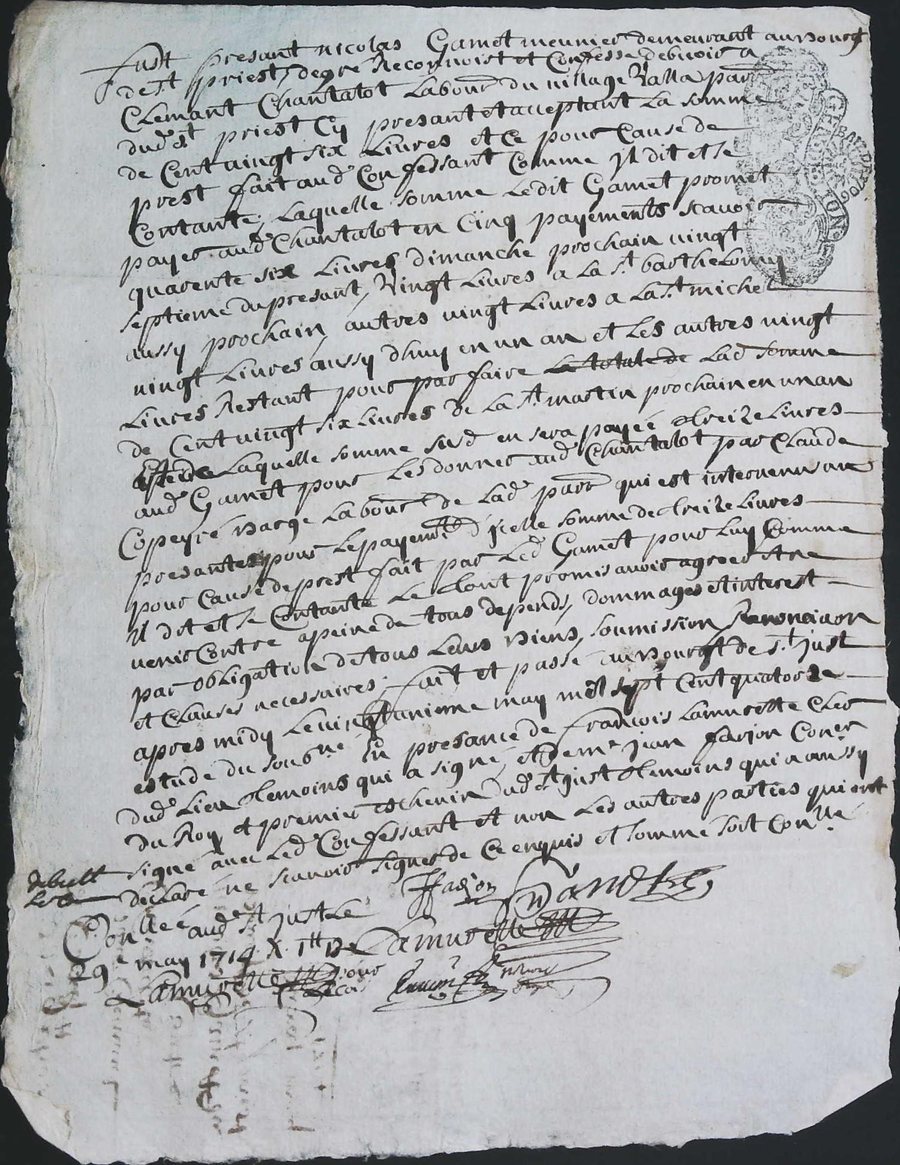 Fust presant nicolas Gamet meunier demeurant au Bourg
de st priest, de gre Reconnoist et Confesse debvoir a
Clemant Chantalot Labour du village Ralla parr
dud st priest Cy presant et acceptant La somme
de Cent vingt six Livres et ce pour Cause de
prest fait aud Confessant Comme Il dit et se
Contante, Laquelle somme Ledit Gamet promet
payer aud Chantalot en Cinq payements scavoir
quarente six Livres dimanche prochain vingt
septieme du presant, Vingt Livres a La st barthelomy
aussy prochain, autres vingt Livres a La st michel
vingt Livres aussy d'huy en un an et Les autres vingt
Livres Restant pour par faire Le totale de Lad somme
de Cent vingt six Livres de La st martin prochain en un an
Laquelle somme susd en sera payée treize Livres
aud Gamet pour Les donner aud Chantalot par Claude
Copeyré Labour de Lad parr qui est intervenu au
presantes pour Le payemt d'icelle somme de treize Livres
pour Cause de prest fait par Led Gamet pour Luy Comme
Il dit et se Contante Le tout promis avoir agree et ne
venir Contre a peine de tous depends, dommages et interest
par obligation de tous Leurs Biens, soumission Renonciaon
et Clauses necessaires, fait et passé au Bourgt de st just
apres midy Le vingt may mil sept Cent quatorze
estude du sousne En presance de françois Lamurette Clerc
dud Lieu temoins qui a signé, et de me jean farjon Coner
du Roy et premier eschevin dud st just temoins qui a aussy
signé avec Led Confessant et non Les autres parties qui ont
declaré ne scavoir signer de Ce enquis et somme soit Conlle
Conllée aud st just Le
29e may 1714 X
Lamurette
ffarjon
Lamurette
GE
LION